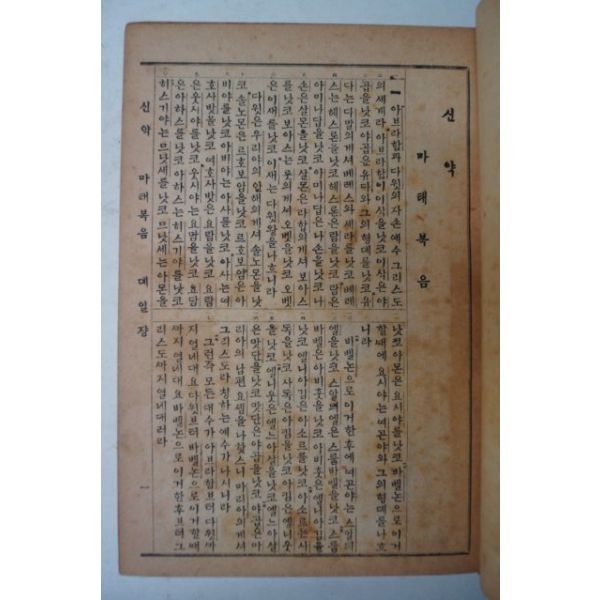 신약
마태복음
一 아브라함과 다윗의 자손 예수 그리스도
의 세계라 아브라함이 이삭을 낫코 이삭은 야
곱을 낫코 야곱은 유다와 그의 형뎨를 낫코 유
다는 다말의게셔 베레스와 세라를 낫코 베레
스는 헤스론을 낫코 헤스론은 람을 낫코 람은
아미나답을 낫코 아미나답은 나손을 낫코 나
손은 살몬을 낫코 살몬은 라합의게셔 보아스
를 낫코 보아스는 룻의게셔 오벳을 낫코 오벳
은 이새를 낫코 이새는 다윗왕을 나흐니라
다윗은 우리야의 안해의게셔 솔노몬을 낫
코 솔노몬은 르호보암을 낫코 르호보암은 아
비야를 낫코 아비야는 아사를 낫코 아사는 여
호사밧을 낫코 여호사밧은 요람을 낫코 요람
은 웃시야를 낫코 웃시야는 요담을 낫코 요담
은 아하스를 낫코 아하스는 히스기야를 낫코
히스기야는 므낫세를 낫코 므낫세는 아몬을
낫코 아몬은 요시야를 낫코 바벨논으로 이거
할 때에 요시야는 여곤야와 그의 형뎨를 나흐
니라
바벨논으로 이거한 후에 여곤야는 스알듸
엘을 낫코 스알듸엘은 스룹바벨을 낫코 스룹
바벨은 아비훗을 낫코 아비훗은 엘니아김을
낫코 엘니아김은 아소르를 낫코 아소르는 사
독을 낫코 사독은 아킴을 낫코 아킴은 엘니웃
을 낫코 엘니웃은 엘느아살을 낫코 엘느아살
은 맛단을 낫코 맛단은 야곱을 낫코 야곱은 마
리아의 남편 요셉을 나핫스니 마리아의게셔
그리스도라 칭하는 예수가 나시니라
그런즉 모든 대수가 아브라함브터 다윗까
지 열네대요 다윗브터 바벨논으로 이거할 때
까지 열네대요 바벨논으로 이거한 후브터 그
리스도까지 열네대러라
신약 마태복음 뎨일장 一